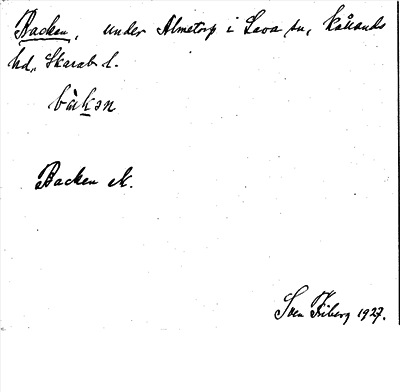 Backen, under Almetorp i Sava sn, Kållands
hd, Skarab. l.
bàkən
Backen ek.
Sven Friberg 1927.